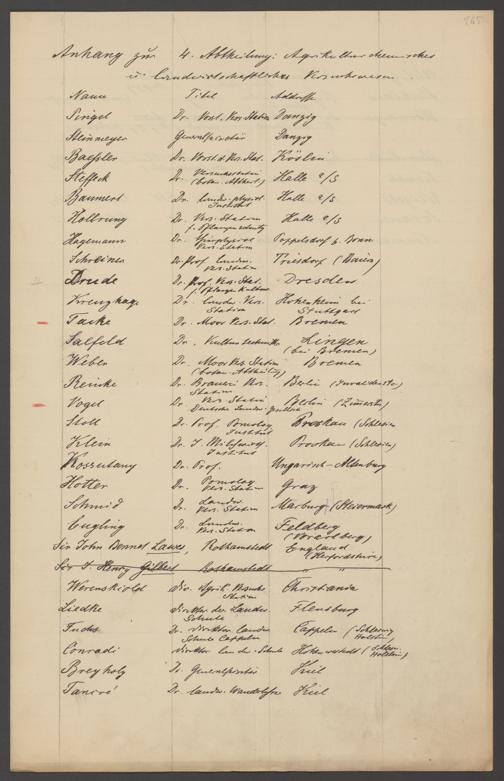 765
Anhang zur 4. Abtheilung: Agrikulturchemisches
u. landwirtschaftliches Versuchswesen
Name Titel Addresse
Dr. Vorst. Vers. Station Danzig
Steinmeyer Generalsekretär Danzig
Baessler Dr. Vorst. d. Vers. Stat. Köslin
Steffeck Dr. Versuchsstation (botan. Abtheil.) Halle a/S
Baumert Dr. landw. physiol. Institut Halle a/S
Hollrung Dr. Vers. Station f. Pflanzenschutz Halle a/S
Hagemann Dr. Vers. Station Poppelsdorf b. Bonn
Schreiner Dr. Prof. landw. Vers. Station Triesdorf (Baiern)
Drude Dr. Prof. Vers. Stat. f. Pflanzenkultur Dresden
Kreuzhage Dr. landw. Vers. Station Hohenheim bei Stuttgart
Tacke Dr. Moor Vers. Stat. Bremen
Salfeld Dr. Kultur Lingen (bei Bremen)
Weber Dr. Moor Vers. Station (botan. Abtheilung) Bremen
Reinke Dr. Brauerei Vers. Station Berlin (Invalidenstr.)
Vogel Dr. Vers. Station Deutsche Landw. Gesellsch. Berlin (Zimmerstr.)
Stoll Dr. Prof. Pomolog. Institut Proskau (Schlesien)
Klein Dr. J. Milchwirt. Institut Proskau (Schlesien)
Kossutany Dr. Prof. Ungarisch-Altenburg
Hotter Dr. Pomolog. Vers. Station Graz
Schmid Dr. Landw. Vers. Station Marburg (Steiermark)
Eugling Dr. Landw. Vers. Station Feldberg (Vorarlberg)
Sir John Bennet Lawes, Rothamstedt England (Herfordshire)
Sir J. Henry Gilbert Rothamstedt " "
Werenskiold dir. Agrik. Versuchs Station Christiania
Liedke Direktor der Landw. Schule Flensburg
Fuchs Dr. Direktor landw. Schule Cappeln Cappeln (Schleswig Holstein)
Conradi Direktor landw. Schule Hohenwestedt (Schlesw. Holstein)
Breyholz Dr. Generalsekretär Kiel
Tancré Dr. landw. Wanderlehrer Kiel